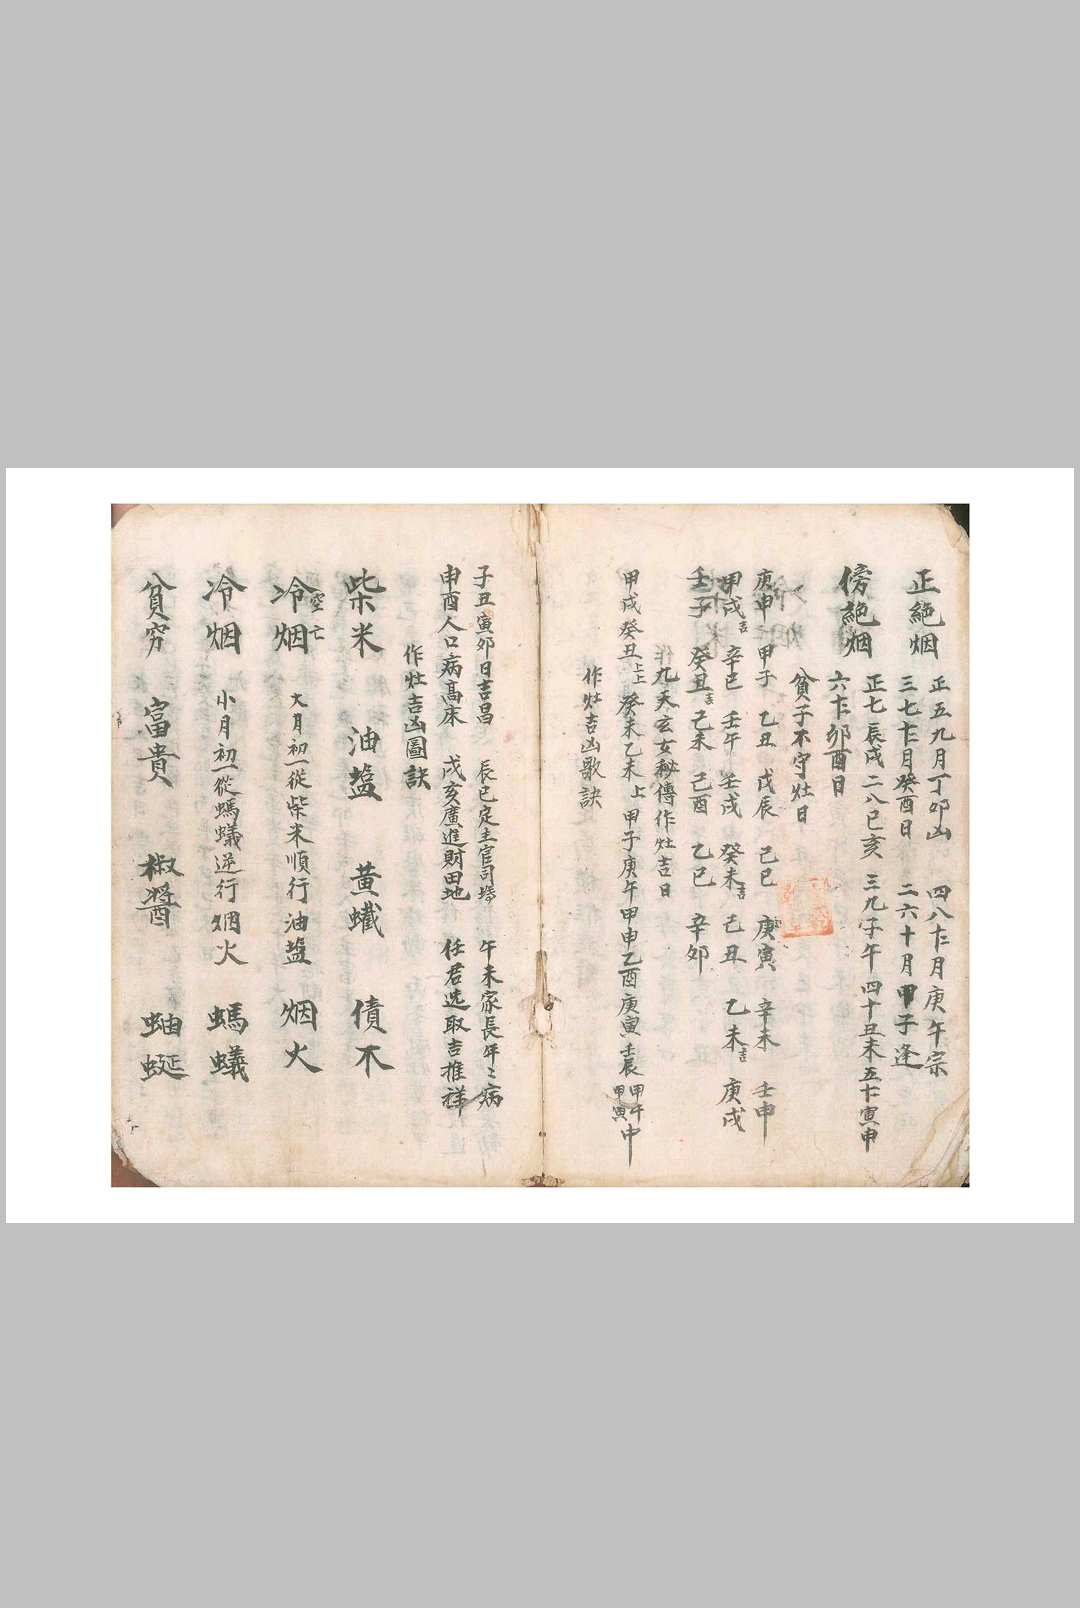 正絕烟
正五九月丁卯凶　四八十二月庚午宗
三七十一月癸酉日　二六十月甲子逢
傍絕烟
正七辰戌二八巳亥　三九子午四十丑未五十一寅申
六十二卯酉日
貧子不守灶日
庚申　甲子　乙丑　戊辰　己巳　庚寅　辛未　壬申
甲戌吉　辛巳　壬午　壬戌　癸未吉　己丑　乙未吉　庚戌
壬子　癸丑吉　己未　己酉　乙巳　辛卯
九天玄女秘傳作灶吉日
甲戌癸丑上上　癸未乙未上　甲子庚午甲申乙酉庚寅壬辰甲午甲寅中
作灶吉凶歌訣
子丑寅卯日吉昌　辰巳定主官司　午未家長年〻病
申酉人口病高床　戌亥廣進財田地　任君选取吉推祥
作灶吉凶圖訣
柴米　油塩　黄蠟　債不
冷烟空亡　大月初一從柴米順行油塩　烟火
冷烟　小月初一從螞蟻逆行烟火　螞蟻
貧穷　富貴　椒醬　蚰蜒